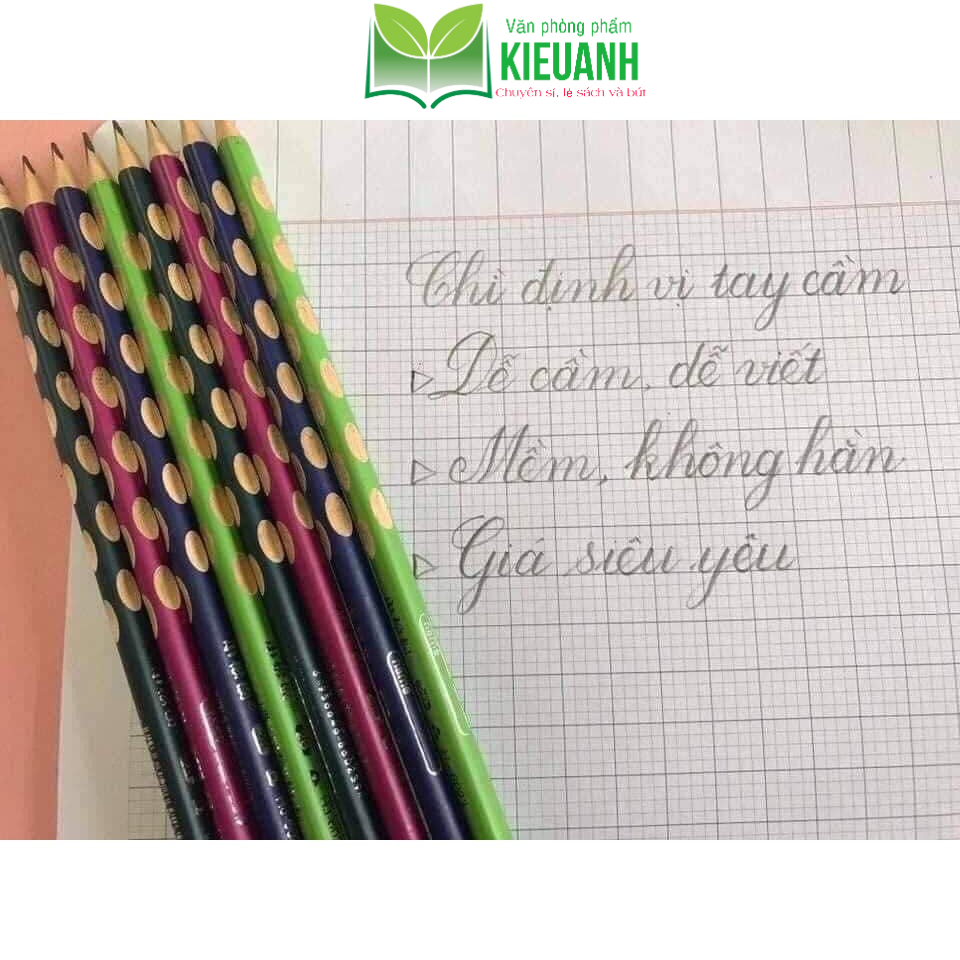 Văn phòng phẩm
KIEUANH
Chuyên sỉ, lẻ sách và bút
Chì định vị tay cầm
Dễ cầm, dễ viết
Mềm, không hằn
Giá siêu yêu
name
name